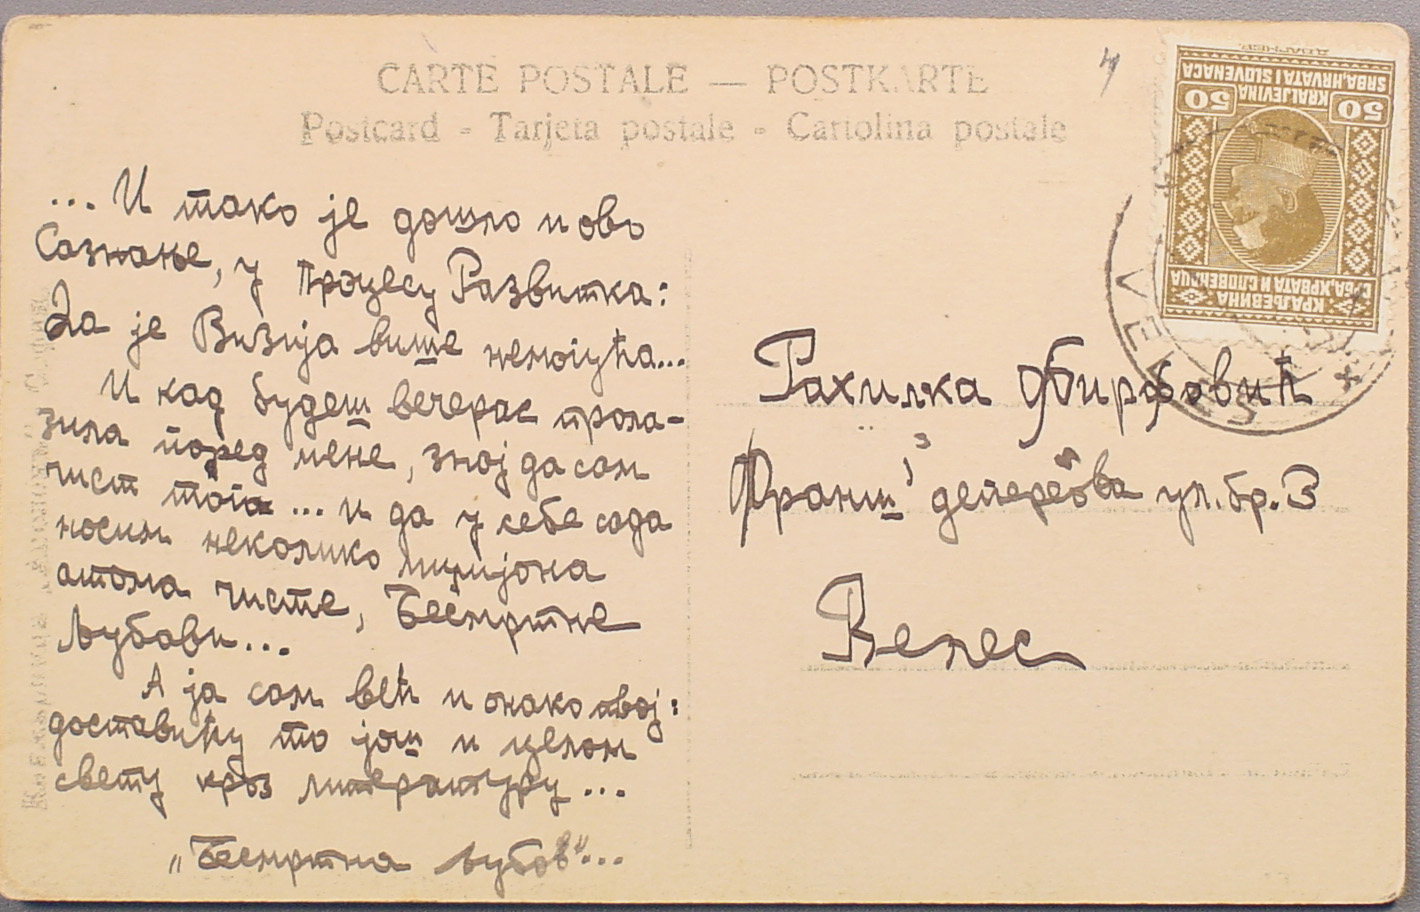 CARTE POSTALE — POSTKARTE
Postcard - Tarjeta postale - Cartolina postale
... И тако је дошло и ово
Сазнање, у Процесу Развитка:
Да је Визија више немогућа...
И кад будеш вечерас прола-
зила поред мене, знај да сам
чист тога ... и да у себи сада
носим неколико милијона
атома чисте, Бесмртне
Љубави...
А ја сам већ и онако твој:
доставићу то још и целом
свету кроз литературу ...
„Бесмртна љубов"...
Рахилка
Франш д'епереова ул. бр. 3
Велес
КРАЉЕВИНА
СРБА, ХРВАТА И СЛОВЕНАЦА
50 50
KRALJEVINA
SRBA, HRVATA I SLOVENACA